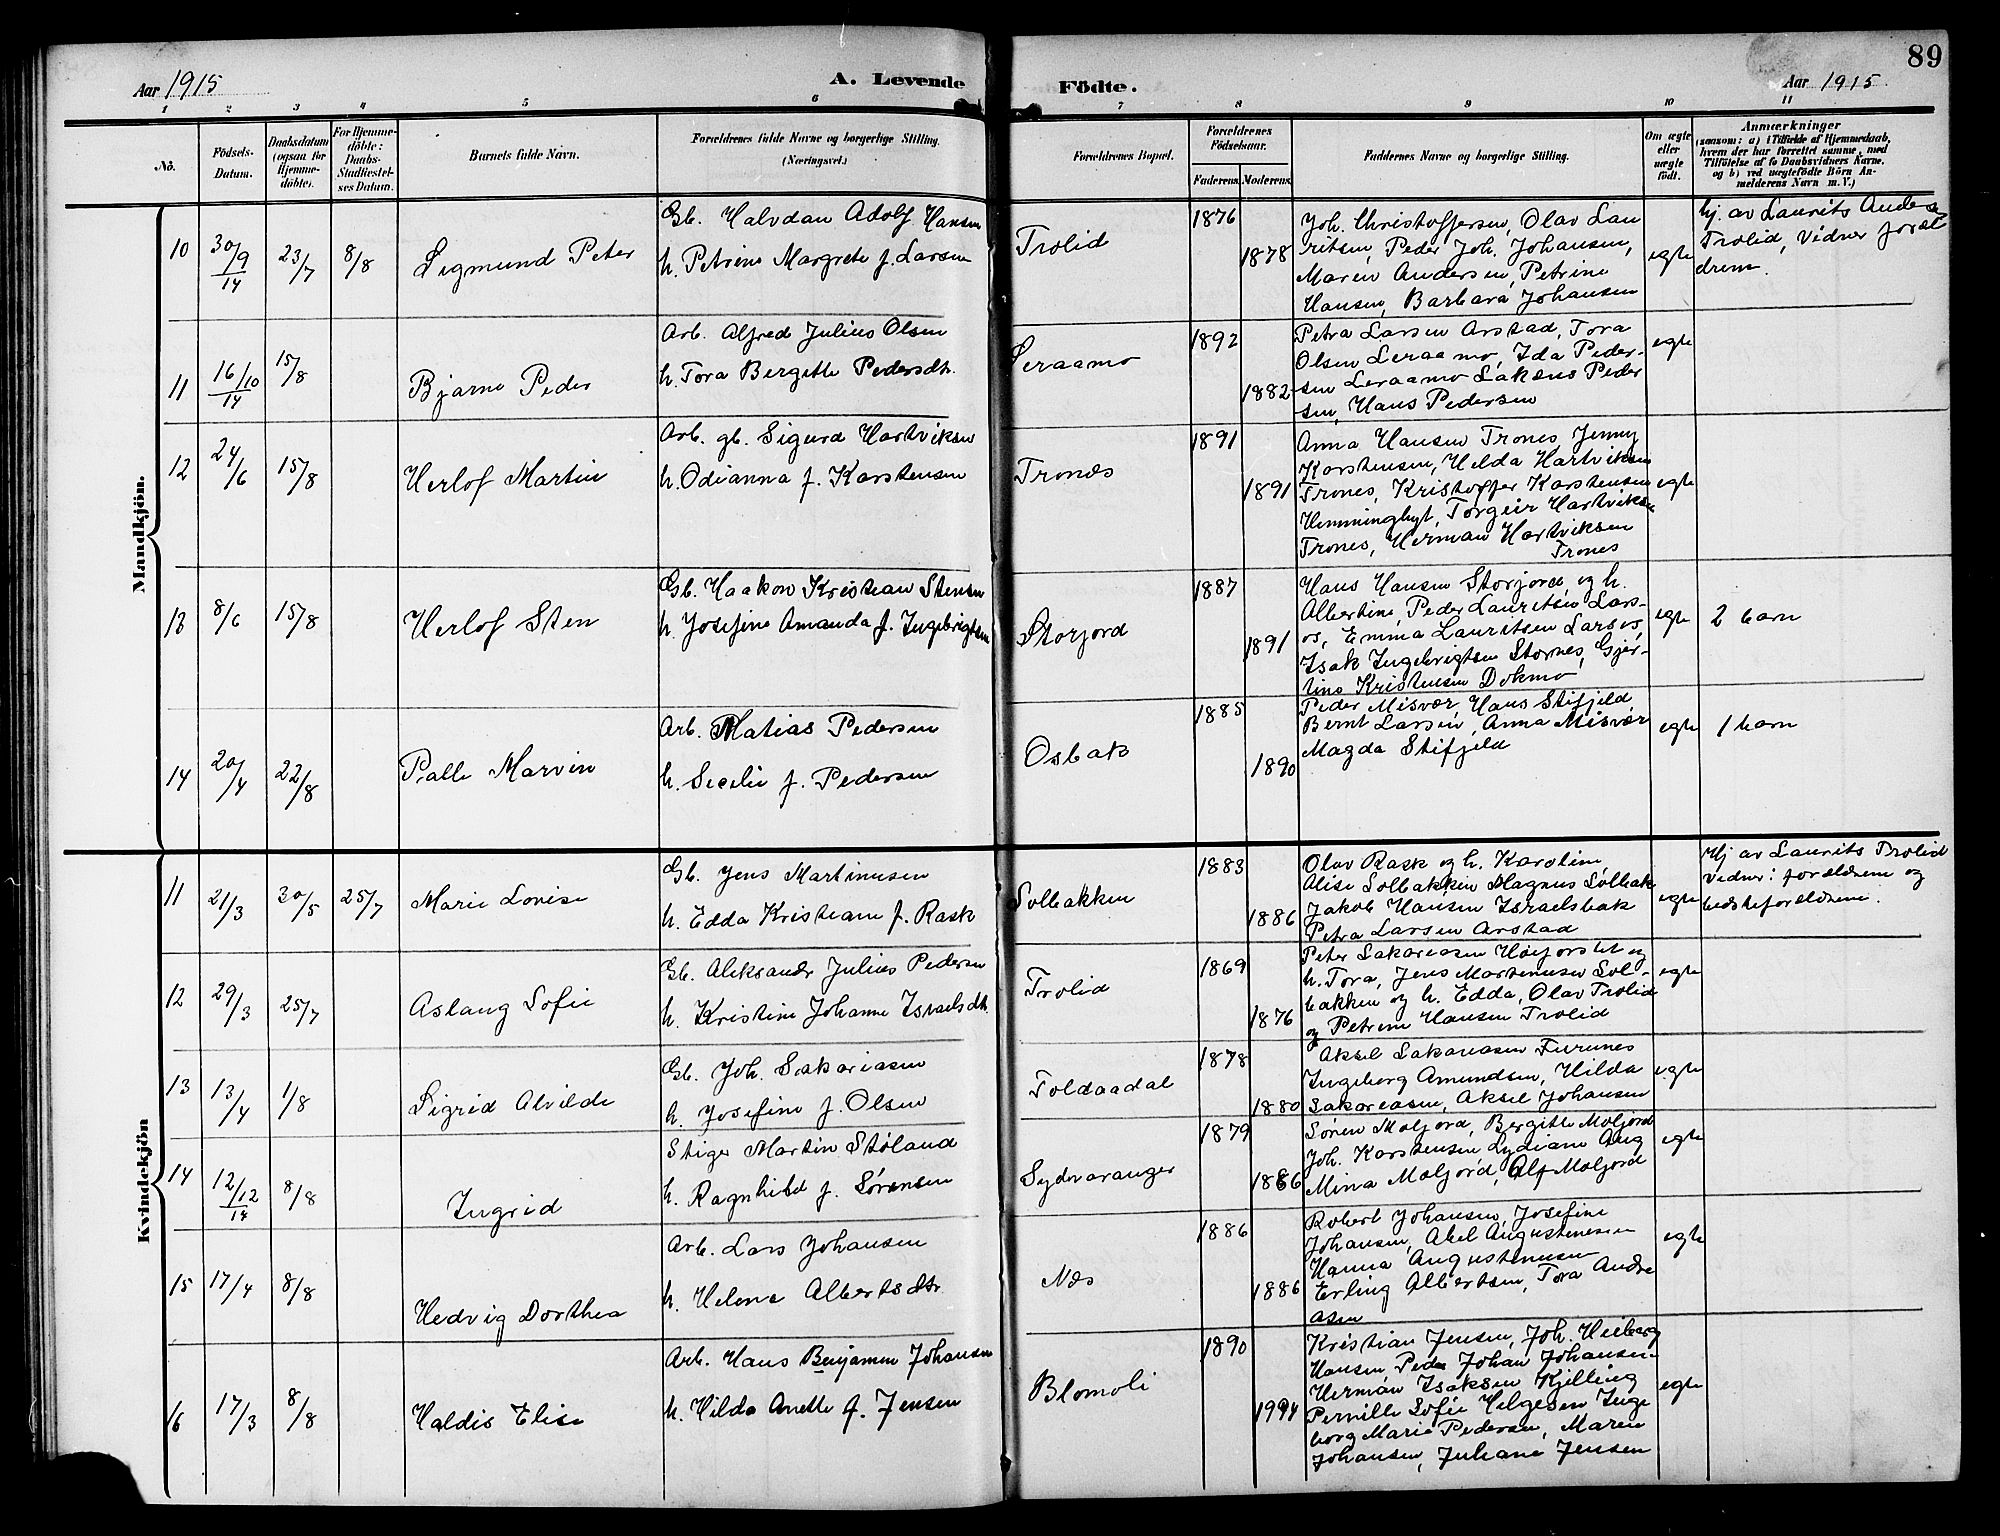 89
Aar 1915
A. Levende Födte.
Aar 1915
1 2 3 4 5 6 7 8 9 10 11
No.
Födsels-
Datum.
Daabsdatum
(ogsaa for
Hjemme-
döbte).
For Hjemme-
döbte:
Daabs-
Stadfæstel-
ses Datum.
Barnets fulde Navn.
Forældrenes fulde Navne og borgerlige Stilling.
(Næringsvei.)
Forældrenes Bopæl.
Forældrenes
Födselsaar.
Faderens. Moderens.
Faddernes Navne og borgerlige Stilling.
Om ægte
eller
uægte
födt.
Anmærkninger
(saasom: a) i Tilfælde af Hjemmedaab,
hvem der har forrettet samme, med
Tilföielse af to Daabsvidners Navne,
og b) ved uægtefödte Börn An-
melderens Navn m. V.)
Mandkjön.
10
30/9
14
23/7
8/8
Sigmund Peter
Gb. Halvdan Adolf Hansen
h. Petrine Margrete f. Larsen
Trolid
1876
1878
Joh. Christoffersen, Olav Lau
ritsen, Peder Joh. Johansen,
Maren Andersen, Petrine
Hansen, Barbara Johansen
egte
hj. av Laurits Anders
Trolid, Vidner foræl
drene.
11
16/10
14
15/8
Bjarne Peder
Arb. Alfred Julius Olsen
h. Tora Bergitte Pedersdt.
Leraamo
1892
1882
Petra Larsen Arstad, Tora
Olsen Leraamo, Ida Peder-
sen Leraamo Sakæus Peder
sen, Hans Pedersen
egte
12
24/6
15/8
Herlof Martin
Arb. gb. Sigurd Hartviksen
h. Odianna f. Karstensen
Tronæs
1891
1891
Anna Hansen Trones, Jenny
Karstensen, Hilda Hartviksen
Trones, Kristoffer Karstensen
Hemminghyt, Torgeir Hartviksen
Trones, Herman Hartviksen
Trones
egte
13
8/6
15/8
Herlof Sten
Gb. Haakon Kristian Stensen
h. Josefine Amanda f. Ingebrigtsen
Storjord
1887
1891
Hans Hansen Storjord, og h.
Albertine, Peder Lauritsen Lars-
os, Emma Lauritsen Larsos,
Isak Ingebrigtsen Stornes, Gjer-
tine Kristensen Dokmo
egte
2 barn
14
20/4
22/8
Palle Marvin
Arb. Matias Pedersen
h. Secilie f. Pedersen
Osbak
1885
1890
Peder Misvær, Hans Stifjeld,
Bernt Larsen, Anna Misvær
Magda Stifjeld
egte
1 barn
Kvindekjön
11
21/3
30/5
25/7
Marie Lovise
Gb. Jens Martinusen
h. Edda Kristiane f. Rask
Solbakken
1883
1886
Olav Rask og h. Karoline
Alise Solbakken Magnus Solbak
Jakob Hansen Israelsbak
Petra Larsen Arstad
egte
Hj av Laurits Trolid
Vidner: forældrene og
bedsteforældrene.
12
29/3
25/7
Aslaug Sofie
Gb. Aleksandr Julius Pedersen
h. Kristine Johanne Israelsdt.
Trolid
1869
1876
Peter Sakariasen Høiforslet og
h. Tora, Jens Martinusen Sol-
bakken og h. Edda, Olav Trolid
og Petrine Hansen Trolid
egte
13
13/4
1/8
Sigrid Alvilde
Gb. Joh. Sakariasen
h. Josefine f. Olsen
Toldaadal
1878
1880
Aksel Sakariasen Furunes
Ingeborg Amundsen, Hilda
Sakareasen, Aksel Johansen
egte
14
12/12
14
8/8
Ingrid
Stiger Martin Støland
h. Ragnhild f. Sørensen
Sydvaranger
1879
1886
Søren Moljord, Bergitte Moljord
Joh. Karstensen Lydiane Aug
Mina Moljord, Alf Moljord
egte
15
17/4
8/8
Hedvig Dorthea
Arb. Lars Johansen
h. Helene Albertsdtr.
Næs
1886
1886
Robert Johansen, Josefine
Johansen, Abel Augustinesen
Hanna Augustinusen
Erling Albertsen, Tora Andre
asen
egte
16
17/3
8/8
Haldis Elise
Arb. Hans Benjamin Johansen
h. Hilda Anette f. Jensen
Blomoli
1890
1994
Kristian Jensen, Joh. Heiberg
Hansen, Peder Johan Johansen
Herman Isaksen Kjelling
Pernille Sofie Helgesen Inge
borg Marie Pedersen, Maren
Johansen, Juliane Jensen
egte